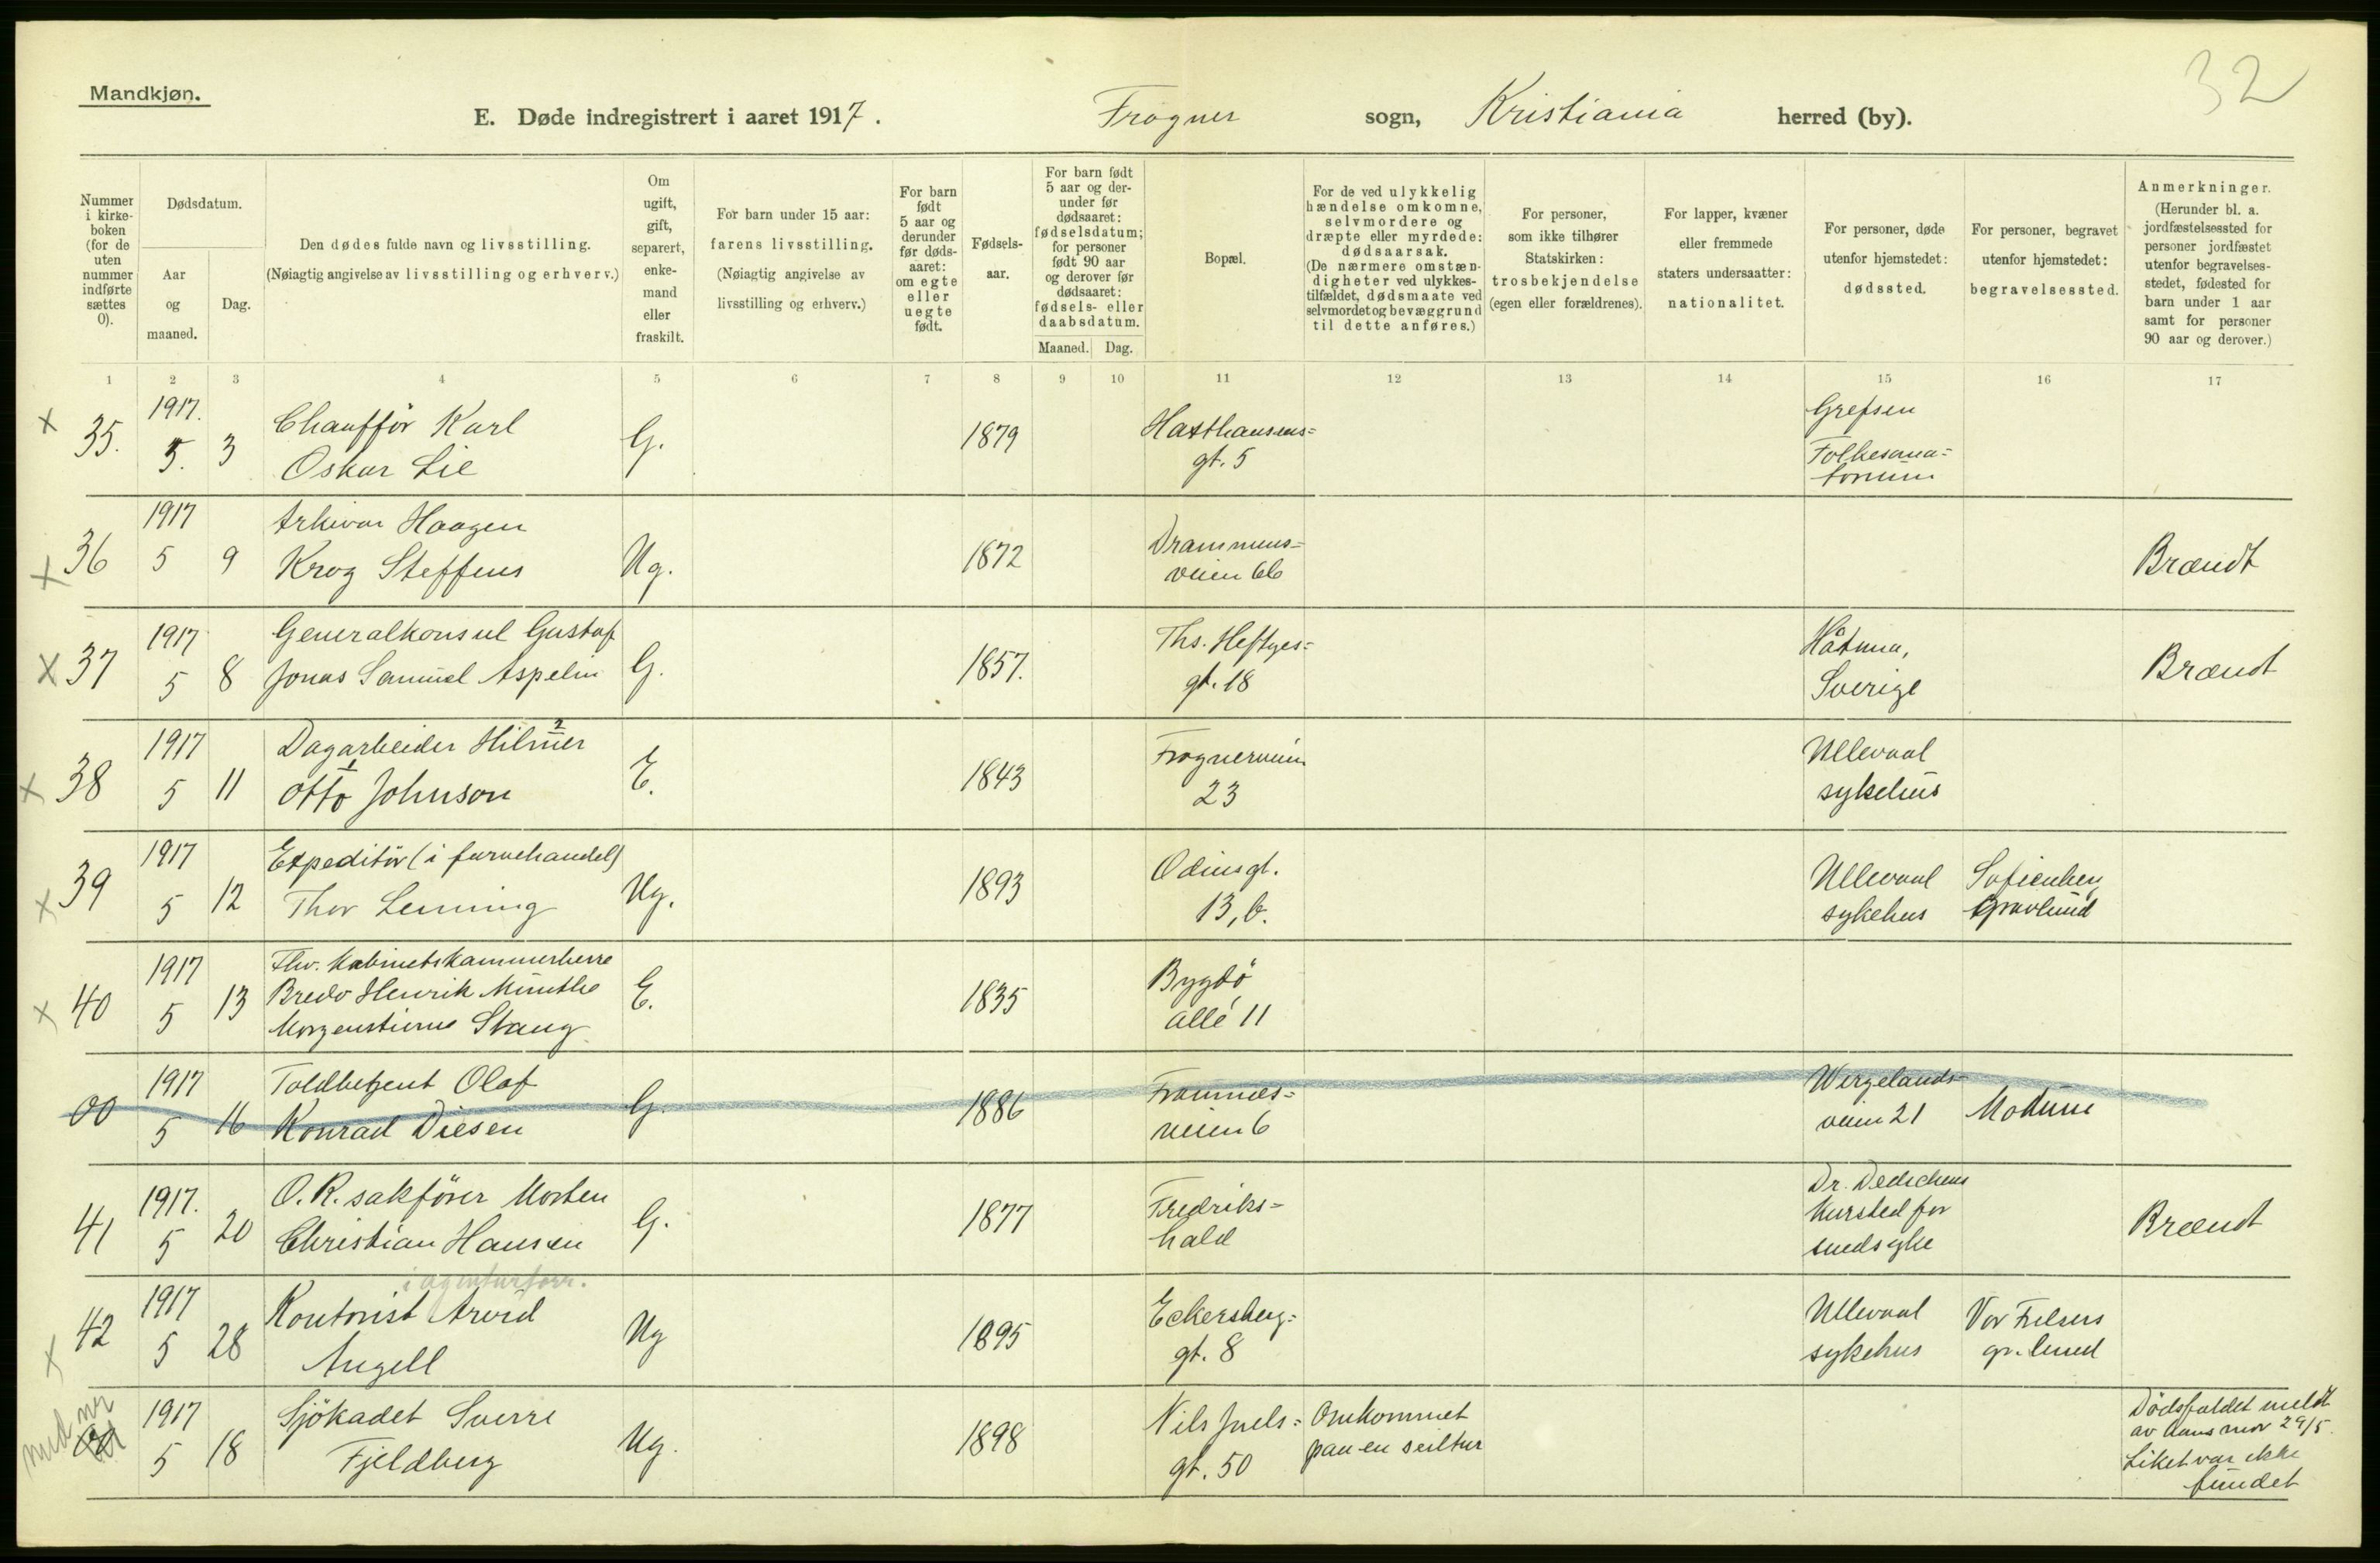 32
Mandkjøn.
E. Døde indregistrert i aaret 1917. Frogner sogn, Kristiania herred (by).
Nummer
i kirke-
boken
(for de
uten
nummer
indførte
sættes
0).
Dødsdatum.
Aar
og
maaned.
Dag.
Den dødes fulde navn og livsstilling.
(Nøiagtig angivelse av livsstilling og erhverv.)
Om
ugift,
gift,
separert,
enke-
mand
eller
fraskilt.
For barn under 15 aar:
farens livsstilling.
(Nøiagtig angivelse av
livsstilling og erhverv.)
For barn
født
5 aar og
derunder
før døds-
aaret:
om egte
eller
uegte
født.
Fødsels-
aar.
For barn født
5 aar og der-
under før
dødsaaret:
fødselsdatum;
for personer
født 90 aar
og derover før
dødsaaret:
fødsels- eller
daabsdatum.
Maaned. Dag.
Bopæl.
For de ved ulykkelig
hændelse omkomne,
selvmordere og
dræpte eller myrdede:
dødsaarsak.
(De nærmere omstæn-
digheter ved ulykkes-
tilfældet, dødsmaate ved
selvmordet og bevæggrund
til dette anføres.)
For personer,
som ikke tilhører
Statskirken:
trosbekjendelse
(egen eller forældrenes).
For lapper, kvæner
eller fremmede
staters undersaatter:
nationalitet.
For personer, døde
utenfor hjemstedet:
dødssted.
For personer, begravet
utenfor hjemstedet:
begravelsessted.
Anmerkninger.
(Herunder bl. a.
jordfæstelsessted for
personer jordfæstet
utenfor begravelses-
stedet, fødested for
barn under 1 aar
samt for personer
90 aar og derover.)
1 2 3 4 5 6 7 8 9 10 11 12 13 14 15 16 17
x 35. 1917. 5. 3
Chauffør Karl
Oskar Lie
G. 1879
Haxthausens=
gt. 5
Grefsen
Folkesana=
torium
x 36 1917 5 9
Arkivar Haagen
Krog Steffens
Ug. 1872
Drammens=
veien 66
Brændt
x 37 1917 5 8
Generalkonsul Gustaf
Jonas Samuel Aspelin
G. 1857.
Ths. Heftyes=
gt. 18
Håtuna,
Sverige
Brændt
x 38 1917 5 11
Dagarbeider Hilmer 2
1 Otto Johnson
E. 1843
Frognerveien
23
Ullevaal
sykehus
x 39 1917 5 12
Expeditör (i farvehandel)
Thor Lenning
Ug. 1893
Odinsgt.
13, b.
Ullevaal
sykehus
Sofienberg
gravlund
x 40 1917 5 13
Fhv. Kabinetskammerherre
Bredo Henrik Munthe
Morgenstierne Stang
E. 1835
Bygdö
allé 11
00 1917 5 16
Toldbetjent Olaf
Konrad Diesen
G. 1886
Framnes=
veien 6
Wergelands=
veien 21
Modum
41 1917. 5 20
O. R. sakfører Morten
Christian Hansen
G. 1877
Fredriks=
hald
Dr. Dedichens
kursted for
sindsyke
Brændt
x 42 1917 5 28
i agenturforr.
Kontorist Arvid
Angell
Ug 1895
Eckersberg=
gt. 8
Ullevaal
sykehus
Vor Frelsers
gr. lund
1917 5 18
Sjökadet Sverre
Fjeldberg
Ug. 1898
Nils Juels=
gt. 50
Omkommet
paa en seiltur
Dødsfaldet meldt
av hans mor 29/5.
Liket var ikke
fundet